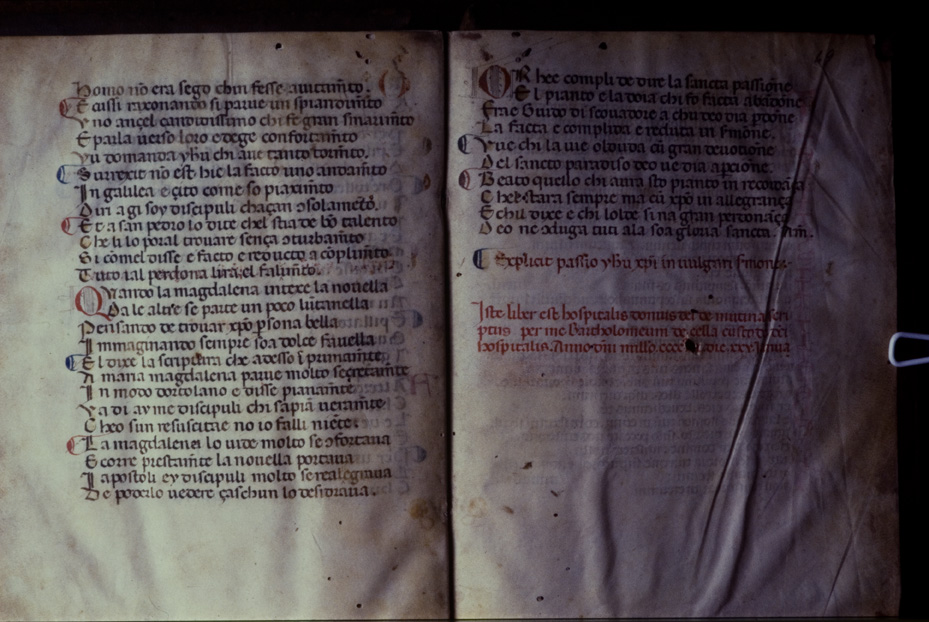 Homo nõ era sego chin fesse avitamẽto.
E cussi raxonando si parue un spiandimẽto
Vno angel candidissimo chi fe gran smarimẽto
E parla uerso loro e dege confortamẽto
Vu domanda yhu chi aue tanto tormẽto.
Surrexit nõ est hic la facto uno andamẽto
In galilea e çito come so piaximẽto
Din agi soy discipuli chaçan ꝯsolamẽto.
Et a san pedro lo dite chel stia de bõ talento
Che li lo poral trouare sença ꝯturbamẽto
Si comel disse e facto e reducto a cõplimẽto
Tuto ial perdona lira el falimẽto.
Quando la magdalena intexe la nouella
Da le altre se parte un poco luntanella
Pensando de trouar xpo psona bella
Immaginando sempre soa dolce fauella
El dixe la scriptura che adesso
A mana magdalena parue molto segretamẽte
In modo dortolano e disse pianamẽte
Va di ay me discipuli chi sapia ueramẽte
Cheo sun resuscitae no io falli niẽte.
La magdalena lo uide molto se ꝯfortaua
E corre prestamẽte la nouella portaua
I apostoli ey discipuli molto se realegraua
De poderlo uedere çaschun lo desiraua.
OR hee compli de dire la sancta passione
E l pianto e la doia chi fo facta
Frae Guido
La facta e complita e reduta in smone.
Vue chi la uie olduda cũ gran deuotione
Del sancto paradiso deo ue dia
Beato quello chi aura sto pianto in
Che stara sempre ma cũ xpo in allegrança
E chil dixe e chi
Deo ne ꝯduga tuti ala soa gloria sancta. Am.
Explicit passio yhu xpi in uulgari smone.
Iste liber est hospitalis domus dei de mutina scri
ptus per me Bartholomeum de cella custodẽ dei
hospitalis. Anno dni millo. cccc